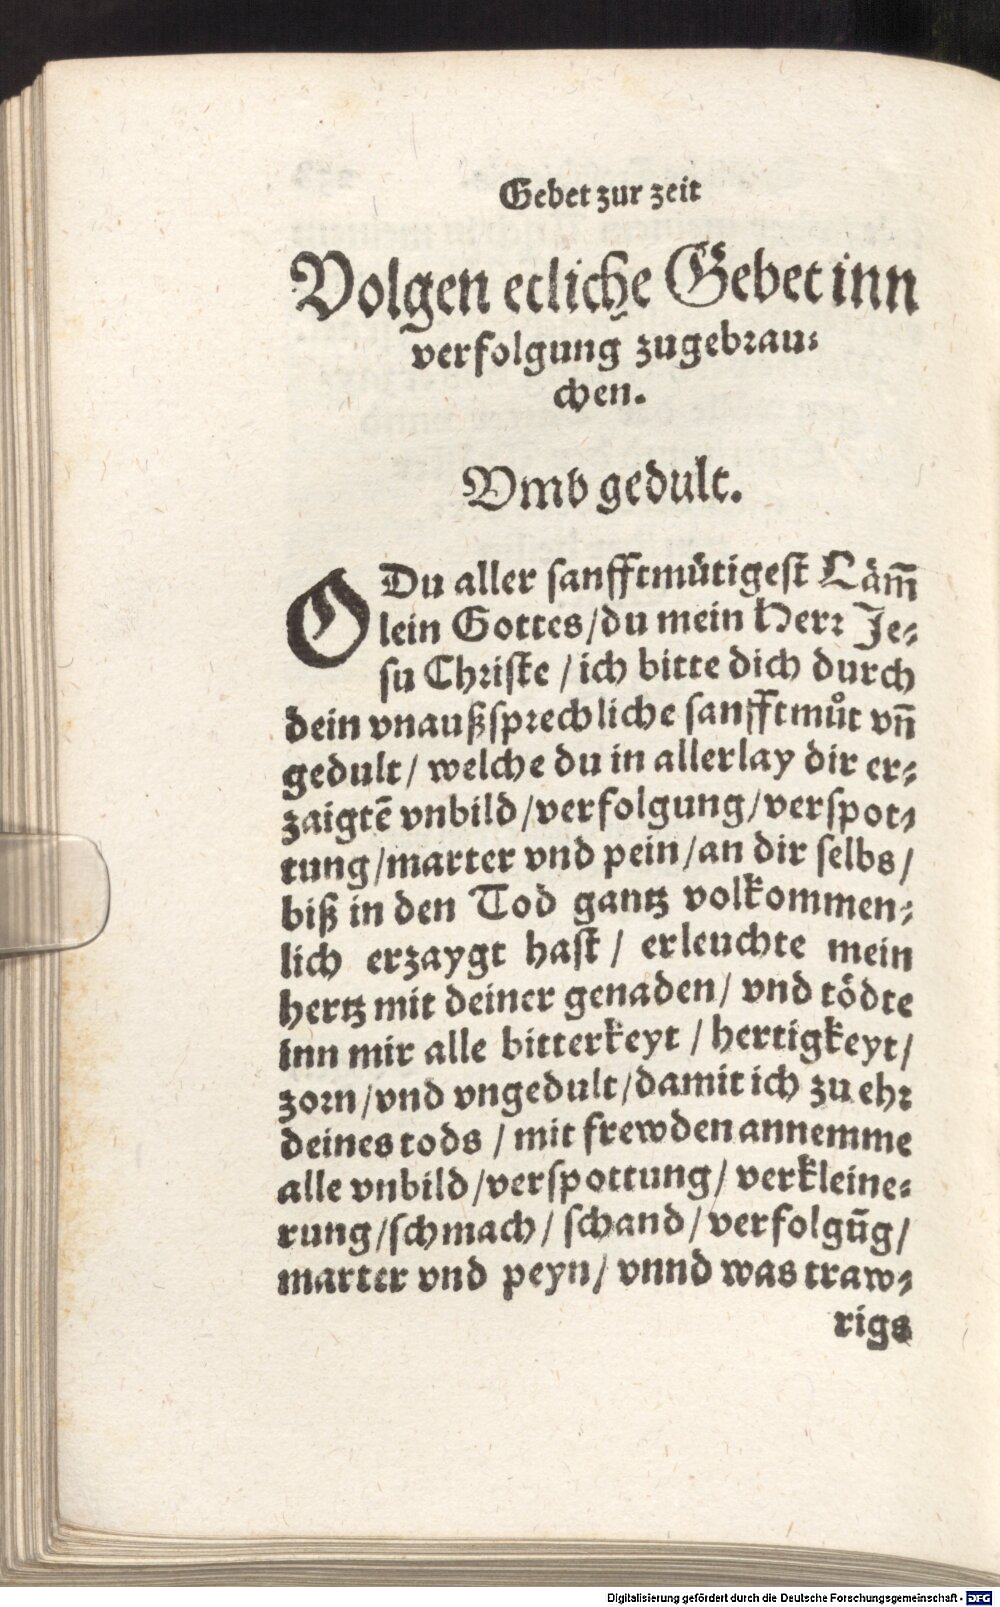 Gebet zur zeit
Volgen etliche Gebet inn
verfolgung zugebrau⸗
chen.
Vmb gedult.
O Du aller sanfftmütigest Läm̃
lein Gottes/du mein Herr Je⸗
su Christe / ich bitte dich durch
dein vnaußsprechliche sanfftmůt vn̄
gedult/ welche du in allerlay dir er⸗
zaigtē vnbild/verfolgung/verspot⸗
tung/marter vnd pein/an dir selbs/
biß in den Tod gantz volkommen⸗
lich erzaygt hast/ erleuchte mein
hertz mit deiner genaden/ vnd tödte
inn mir alle bitterkeyt / hertigkeyt/
zorn/vnd vngedult/damit ich zu ehr
deines tods / mit frewden annemme
alle vnbild/verspottung/ verkleine⸗
rung/schmach/ schand/ verfolgūg/
marter vnd peyn/ vnnd was traw⸗
rigs
Digitalisierung gefördert durch die Deutsche Forschungsgemeinschaft - DFG